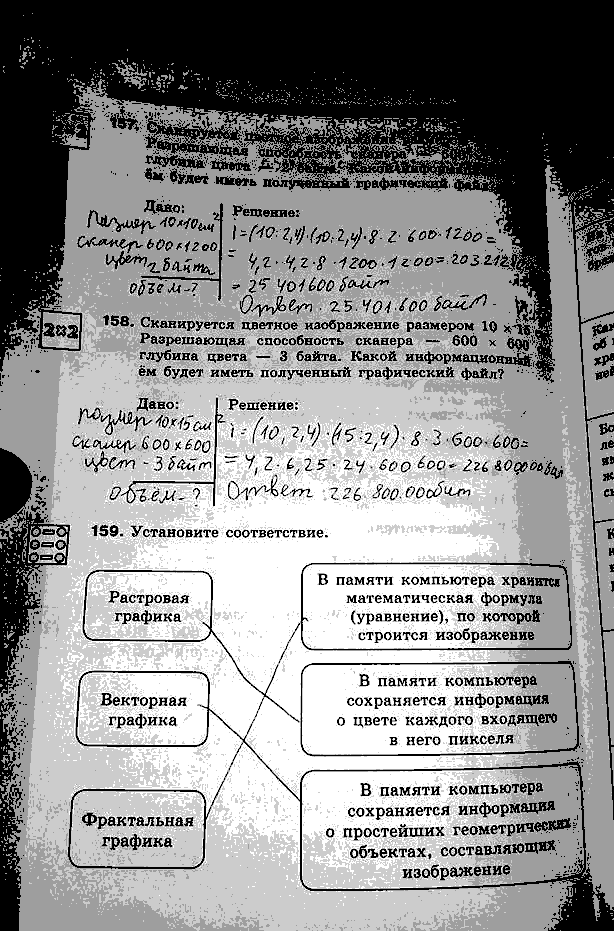 157. Сканируется цветное изображение
Разрешающая способность сканера — 600
глубина цвета — 2 байта. Какой информацион
ём будет иметь полученный графический файл
Дано:
Решение:
Размер 10×10см²
сканер 600×1200
цвет 2 байта
объём - ?
i=(10:2,4)·(10:2,4)·8·2·600·1200=
= 4,2·4,2·8·1200·1200=203212
= 25 401600 байт
Ответ: 25.401.600 байт.
2⇄2
158. Сканируется цветное изображение размером 10 × 15
Разрешающая способность сканера — 600 × 600
глубина цвета — 3 байта. Какой информационный
ём будет иметь полученный графический файл?
Дано:
Решение:
размер 10×15см²
сканер 600×600
цвет - 3 байт
объём - ?
i=(10,2,4)·(15:2,4)·8·3·600·600=
= 4,2·6,25·24·600 600=
Ответ:
159. Установите соответствие.
Растровая
графика
Векторная
графика
Фрактальная
графика
В памяти компьютера хранится
математическая формула
(уравнение), по которой
строится изображение
В памяти компьютера
сохраняется информация
о цвете каждого входящего
в него пикселя
В памяти компьютера
сохраняется информация
о простейших геометрических
объектах, составляющих
изображение